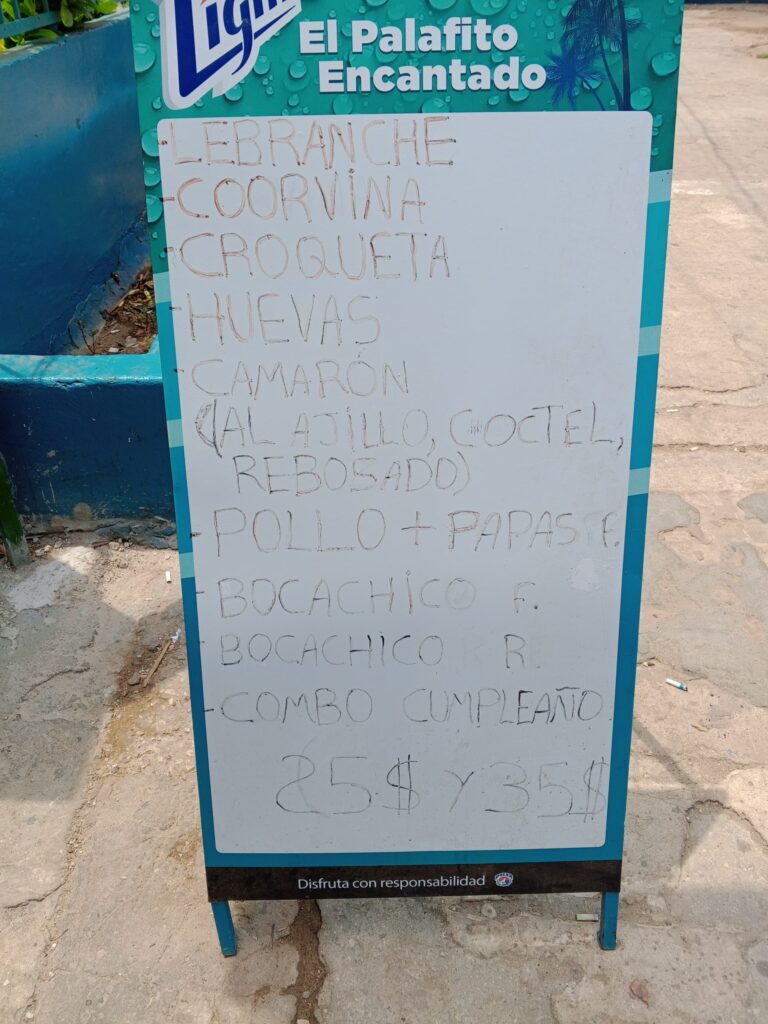 Light
El Palafito
Encantado
-LEBRANCHE
-COORVINA
-CROQUETA
-HUEVAS
-CAMARÓN
(AL AJILLO, COCTEL,
REBOSADO)
-POLLO + PAPAS F.
-BOCACHICO F.
-BOCACHICO R
-COMBO CUMPLEAÑO
25$ Y 35$
Disfruta con responsabilidad